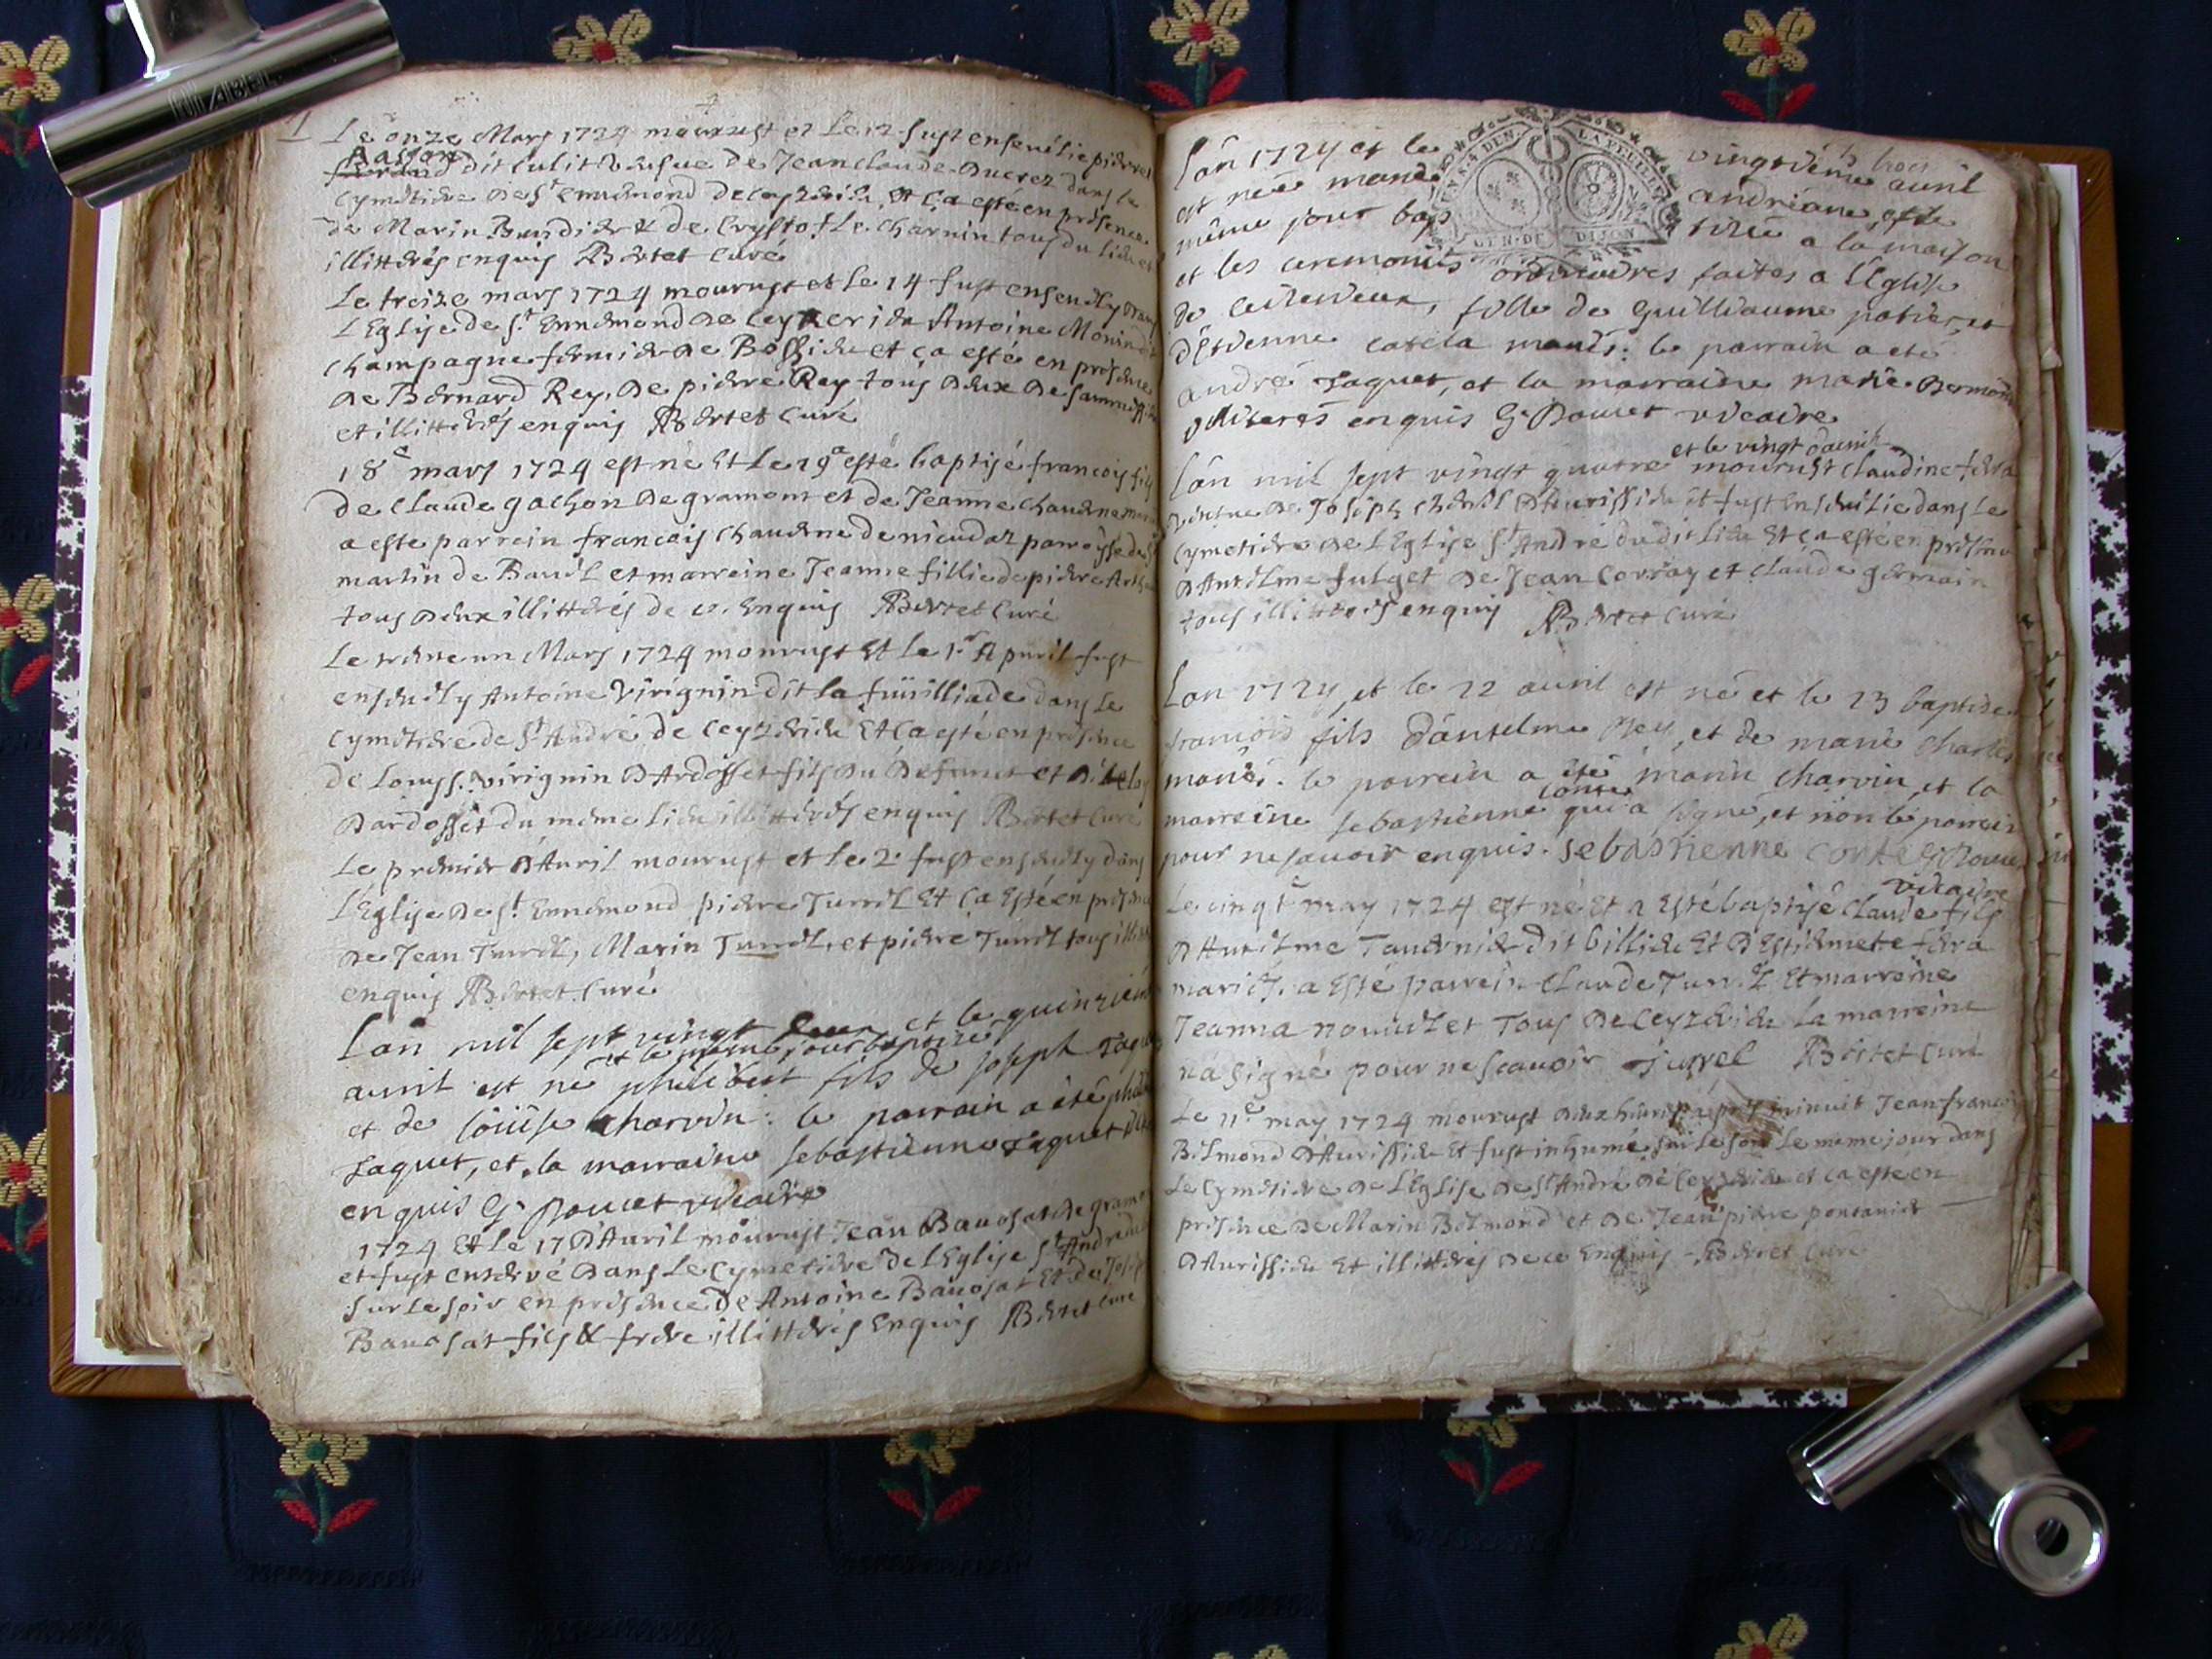 Le onze Mars 1724 mourust et Le 12 fust ensevelie pierrett
dit Culit vesue de Jean Claude Ducrez dans le
Cymetiere de St Ennemond de Ceyzerieu, Et ça esté en présence
de Marin Burdier & de Crystofle Charvin tous du lieu et
illitterés enquis Bertet Curé
Le treize mars 1724 mourust et Le 14 fust ensevely dans
L'Eglise de St Ennemond de Ceyzerieu Antoine Monin dit
Champagne fermier de Bossieu et ça esté en présence
de Bernard Rey, de pierre Rey tous deux de
et illitterés enquis Bertet Curé
18e mars 1724 est né Et le 19 a esté baptisé francois fils
de Claude gachon de gramont et de Jeanne Chaudrne
a este parrein francois Chaudrne de paroysse de St
martin de Bavel et marreine Jeanne fillie de pierre
tous deux illitterés de ce Enquis Bertet Curé
Le trente un Mars 1724 mourust Et Le 1er Apvril fust
ensevely Antoine Virignin dit la fuillade dans Le
Cymetiere de St André de Ceyzerieu Et ça esté en présence
de Louys Virignin D'Ardosset fils du défunct et
Dardosset du même lieu illitterés enquis Bertet Curé
Le premier D'Avril mourust et Le 2e fust ensevely dans
L'Eglise de St Ennemond pierre Turrel Et ça Esté en présence
de Jean Turrel, Marin Turrel, et pierre Turrel tous illitt
enquis Bertet Curé
L'an mil sept vingt et le quinzieme
et le même jour baptizé
avril est né philibert fils de joseph Jaquet
et de loüise Charvin: le parrain a été
Jaquet, et la marraine sebastienne Jaquet
enquis G. Doucet vicaire
1724 Et Le 17 D'Avril mourust Jean Bavosat de gramont
et fust enterré Dans Le Cymetiere de l'Eglise St André
sur Le soir en présence de Antoine Bavosat Et de Joseph
Bavosat fils & frere illitterés Enquis Bertet Curé
L'an 1724 et le vingt avril
est née marie andriane, et le
même jour bap tizée a la maison
et les ceremonies ordinaires faites a l'Eglise
de Ceizerieux, fille de guilliaume patier, et
d'Etienne mariés: le parrain a eté
andré Jaquet, et la marraine marie
illiterés enquis G. Doucet vicaire
et le vingt d'avril
L'an mil sept vingt quatre mourust Claudine
de Joseph D'Aurissieu et fust Ensevelie dans Le
Cymetiere de L'Eglise St André dudit lieu Et ça esté en présence
D'Antelme fulget de Jean Corray et Claude germain
tous illitterés enquis Bertet Curé
L'an 1724, et le 22 avril est né et le 23 baptisé
francois fils d'antelme Rey, et de marie Charles
mariés. le parrein a été marin charvin, et la
conte
marreine sebastienne qui a signé, et non le parrein
pour ne savoir enquis. sebastienne conte G. Doucet
vicaire
Le cinqe may 1724 est né Et a Esté baptisé Claude fils
D'Antelme Tavernier dit billieu Et D'Estiennete
mariés. a Esté parrein Claude Turrel Et marreine
Jeanna et Tous de Ceyzerieu La marreine
n'a signé pour ne scavoir Turrel Bertet Curé
Le 11e may 1724 mourust deux heures après minuit Jean francois
Belmond D'Aurissieu Et fust inhumé sur Le soir Le meme jour dans
Le Cymetiere de L'Eglise de St André de Ceyzerieu et ça esté en
présence de Marin Belmond et de Jean pierre
D'Aurissieu Et illitterés de ce Enquis Bertet Curé